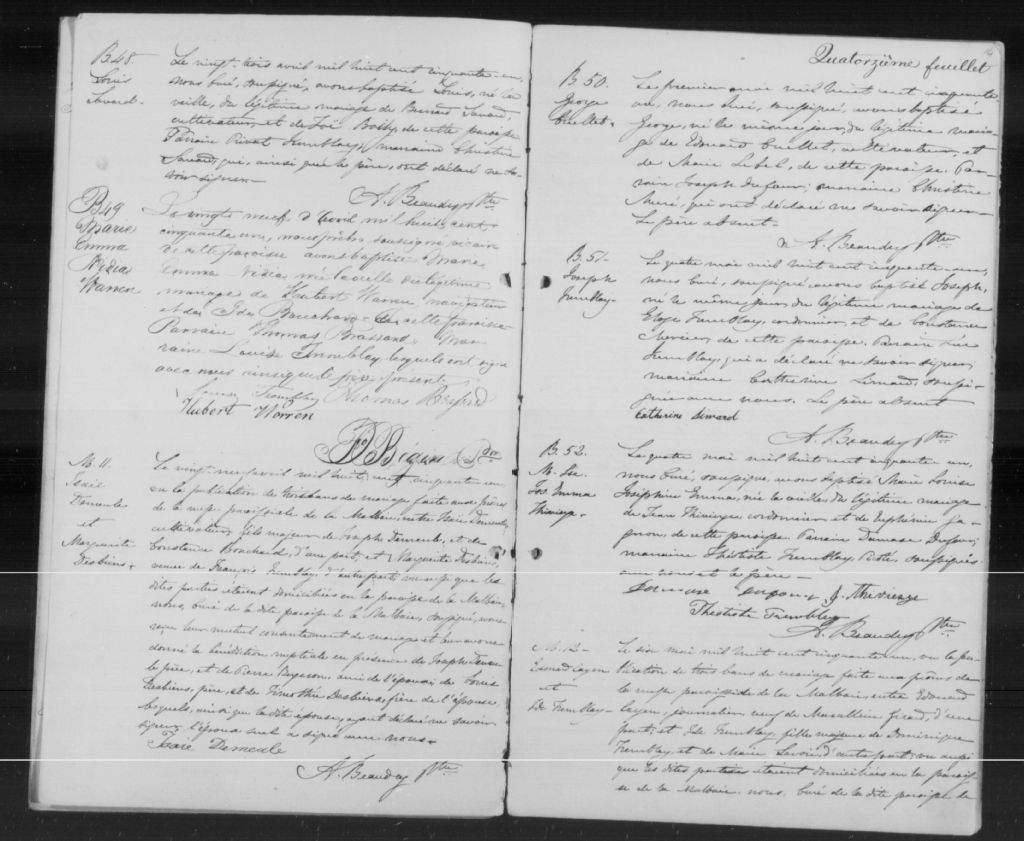 B.48.
Louis
Le vingt-trois avril mil huit cent cinquante-un,
nous curé, soussigné, avons baptisé Louis, né la
veille, du légitime mariage de
cultivateur, et de Zoé Boily, de cette paroisse
Parrain Tremblay, marraine Christine
qui, ainsi que le père, ont déclaré ne sa-
voir signer.
A. Beaudry Ptre
B49
Marie
Emma
Nidia
Warren
Le vingt neuf d'Avril mil huit cent
cinquante un, nous prêtre soussigné vicaire
de cette paroisse avons baptisé Marie
Emma Nidia, née la veille du légitime
mariage de Hubert Warren, navigateur
et de Bouchard de cette paroisse
Parrain Thomas Brassard Mar
raine Louise Tremblay lesquels ont signé
avec nous ainsi que le père présent.
Louise Tremblay Thomas
Hubert Warren
M. 11.
Isaïe
Demeule
et
Marguerite
Desbiens.
Le vingt-neuf avril mil huit cent cinquante un
vu la publication de trois bans de mariage faite aux prônes
de la messe paroissiale de la Malbaie, entre Isaïe Demeule,
cultivateur, fils majeur de Joseph Demeule, et de
Constance Bouchard, d'une part, et Marguerite Desbiens,
veuve de François Tremblay, d'autre part; vu aussi que les
dites parties étaient domiciliées en la paroisse de la Malbaie,
nous, curé de la dite paroisse de la Malbaie, soussigné, avons
reçu leur mutuel consentement de mariage et leur avons
donné la bénédiction nuptiale en présence de Joseph Demeule
le père, et de Pierre Bergeron, ami de l'époux; de Louis
Desbiens, père, et de Timothée Desbiens, frère de l'épouse,
lesquels, ainsi que la dite épouse, ayant déclaré ne savoir
signer, l'époux seul a signé avec nous.
Isaïe Demeule
A. Beaudry Ptre
Quatorzième feuillet
B. 50.
George
Ouellet.
Le premier mai mil huit cent cinquante-
un, nous curé, soussigné, avons baptisé
George, né le même jour, du légitime maria-
ge de Edouard Ouellet, cultivateur, et
de Marie Lebel, de cette paroisse. Par-
rain Joseph Dufour; marraine Christine
qui ont déclaré ne savoir signer.
Le père absent.
A. Beaudry Ptre
B. 51.
Joseph
Tremblay.
Le quatre mai mil huit cent cinquante-un,
nous curé, soussigné avons baptisé Joseph,
né le même jour, du légitime mariage de
Eloye Tremblay, cordonnier, et de Constance
de cette paroisse. Parrain
Tremblay, qui a déclaré ne savoir signer,
marraine Catherine soussi-
gnée avec nous. Le père absent
Catherine
A. Beaudry Ptre
B. 52.
M. Lse
Jos. Emma
Le quatre mai mil huit cent cinquante un,
nous curé, soussigné, avons baptisé Marie Louise
Joséphine Emma, née la veille, du légitime mariage
de Jean cordonnier, et de Euphémie Ga-
gnon, de cette paroisse. Parrain Damase Dufour;
marraine Théotiste Tremblay soussignés
avec nous et le père.
Théotiste Tremblay
A. Beaudry Ptre
M. 12.
et
Tremblay.
Le six mai mil huit cent cinquante un, vu la pu-
blication de trois bans de mariage faite aux prônes de
la messe paroissiale de la Malbaie, entre Edouard
journalier, veuf de Marcelline Girard, d'une
part; et Tremblay, fille majeure de Dominique
Tremblay, et de Marie Savoie, d'autre part; vu aussi
que les dites parties étaient domiciliées en la parois-
se de la Malbaie, nous, curé de la dite paroisse de